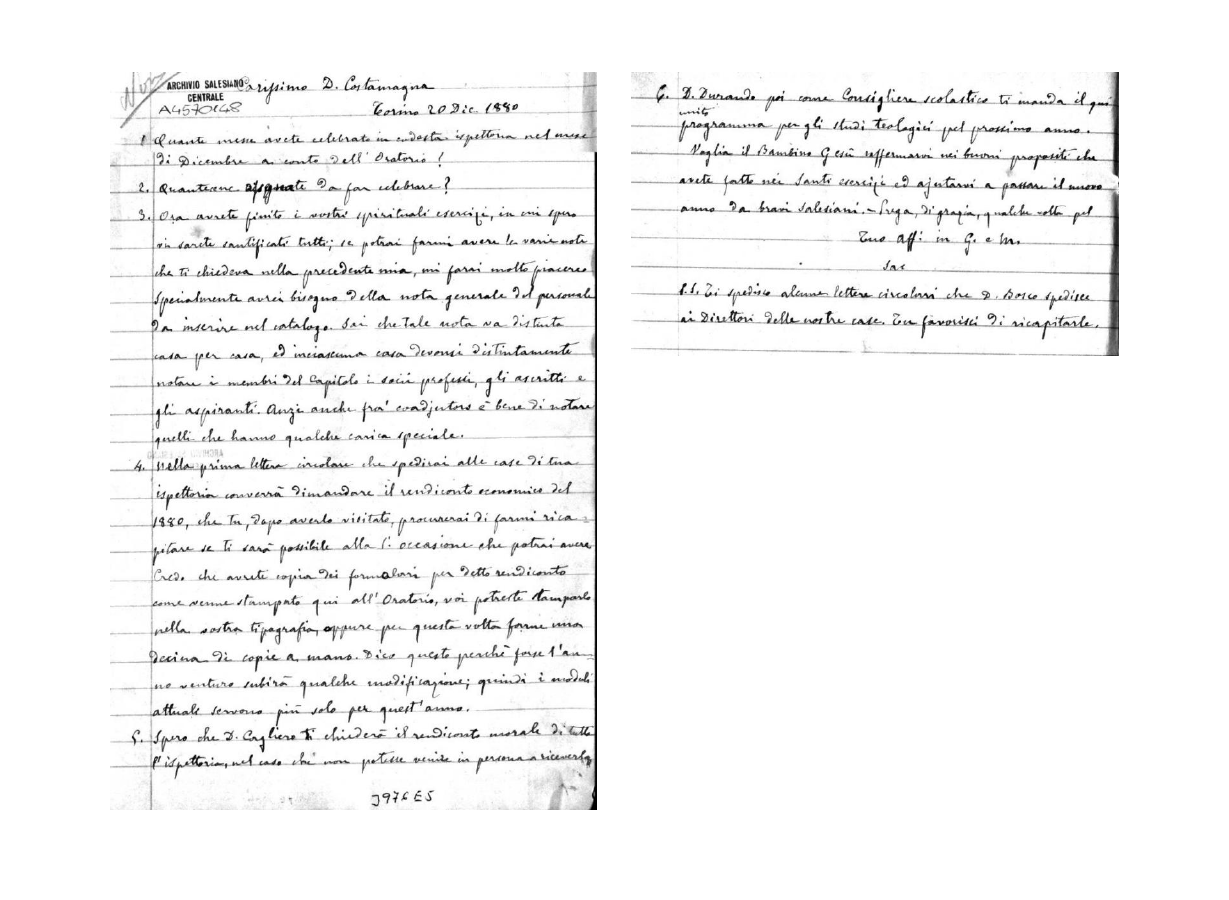 ARCHIVIO SALESIANO
CENTRALE
A4570148
Carissimo D. Costamagna
Torino 20 Dic. 1880
1 Quante messe avete celebrato in codesta ispettoria nel mese
di Dicembre a conto dell'Oratorio?
2. Quantene da far celebrare?
3. Ora avrete finito i vostri spirituali esercizi, in cui spero
vi sarete santificati tutti; se potrai farmi avere le varie note
che ti chiedeva nella precedente mia, mi farai molto piacere
Specialmente avrei bisogno della nota generale del personale
da inserire nel catalogo. Sai che tale nota va distinta
casa per casa, ed in ciascuna casa devonsi distintamente
notare i membri del Capitolo i socii professi, gli ascritti e
gli aspiranti. Anzi anche fra' coadjutori è bene di notare
quelli che hanno qualche carica speciale.
4. Nella prima lettera circolare che spedirai alle case di tua
ispettoria converrà dimandare il rendiconto economico del
1880, che tu, dopo averlo visitato, procurerai di farmi rica=
pitare se ti sarà possibile alla 1a. occasione che potrai avere
Credo che avrete copia dei formolari per detto rendiconto
come venne stampato qui all'Oratorio, voi potreste stamparlo
nella vostra tipografia, oppure per questa volta farne una
decina di copie a mano. Dico questo perchè forse l'an-
no venturo subirà qualche modificazione; quindi i moduli
attuali servono più solo per quest'anno.
5. Spero che D. Cagliero ti chiederà il rendiconto morale di tutta
l'ispettoria, nel caso che non potesse venire in persona a riceverlo
J976E5
6. D. Durando poi come Consigliere scolastico ti manda il qui
unito
programma per gli studi teologici pel prossimo anno.
Voglia il Bambino Gesù raffermarvi nei buoni propositi che
avete fatto nei Santi esercizi ed ajutarvi a passare il nuovo
anno da bravi Salesiani. - Prega, di grazia, qualche volta pel
Tuo Aff: in G. e M.
Sac
P.S. Ti spedisco alcune lettere circolari che D. Bosco spedisce
ai Direttori delle nostre case. Tu favorisci di ricapitarle.